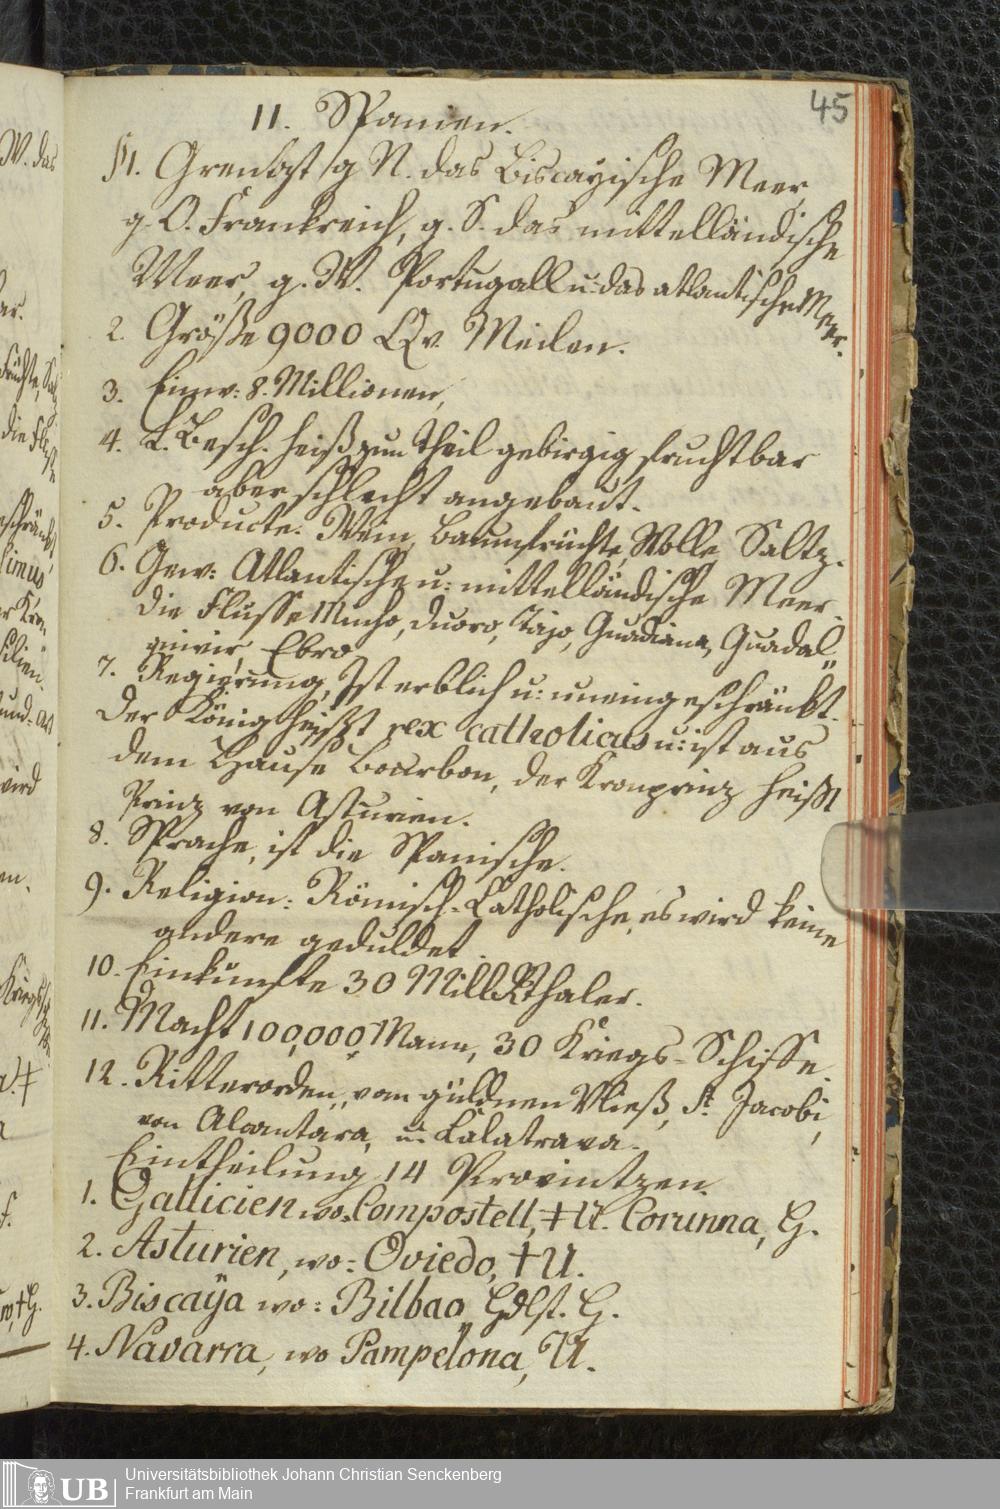 45
11. Spanien.
§1. Grentzt g. N. das Biscayische Meer,
g. O. Frankreich, g. S. das mittelländische
Meer, g. W. Portugall u: das atlantische Meer.
2. Größe 9000 QQv. Meilen.
3. Einw: 8. Millionen,
4. L. Besch. heiß zum theil gebirgig fruchtbar
aber schlecht angebaut.
5. Producte. Wein, Baumfrüchte, Wolle, Saltz.
6. Gew: Atlantische u: mittelländische Meer.
die Flusse Minho, Duoro, Tajo, Guadiana, Guadal„
quivir, Ebro
7. Regierung, Ist erblich u: uneingeschränkt.
der König heißt rex catholicus u: ist aus
dem Hause Bourbon, der Kronprinz heißt
Prinz von Asturien.
8. Sprache, ist die Spanische.
9. Religion: Römisch-Catholische, es wird keine
andere geduldet
10. Einkünfte 30 Mill. Rthaler.
11. Macht 100,000 Mann, 30 Kriegs-Schiffe.
12. Ritterorden, vom güldnen Vließ, St. Jacobi,
von Alcantara, u: Calatrava.
Eintheilung 14 Provintzen.
1. Gallicien wo: Compostell, †U. Corunna, H.
2. Asturien, wo: Oviedo, †U.
3. Biscaÿa wo: Bilbao, Hdlst. H.
4. Navarra, wo Pampelona, U.
UB
Universitätsbibliothek Johann Christian Senckenberg
Frankfurt am Main